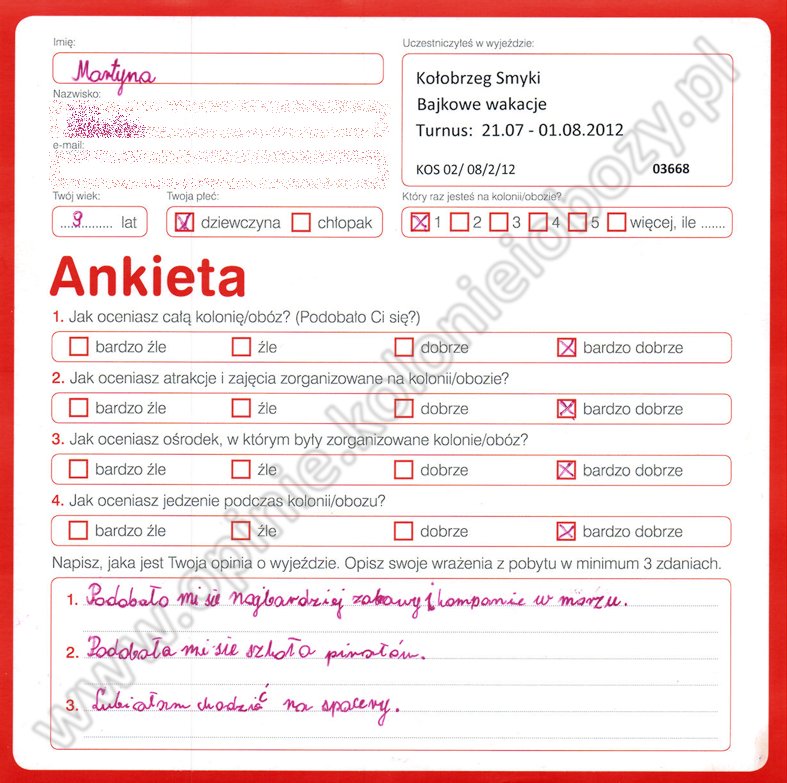 Imię:
Martyna
Uczestniczyłeś w wyjeździe:
Kołobrzeg Smyki
Bajkowe wakacje
Turnus: 21.07 - 01.08.2012
KOS 02/ 08/2/12 03668
Nazwisko:
e-mail:
Twój wiek:
9 lat
Twoja płeć:
dziewczyna chłopak
Który raz jesteś na kolonii/obozie?
1 2 3 4 5 więcej, ile .......
Ankieta
1. Jak oceniasz całą kolonię/obóz? (Podobało Ci się?)
bardzo źle źle dobrze bardzo dobrze
2. Jak oceniasz atrakcje i zajęcia zorganizowane na kolonii/obozie?
bardzo źle źle dobrze bardzo dobrze
3. Jak oceniasz ośrodek, w którym były zorganizowane kolonie/obóz?
bardzo źle źle dobrze bardzo dobrze
4. Jak oceniasz jedzenie podczas kolonii/obozu?
bardzo źle źle dobrze bardzo dobrze
Napisz, jaka jest Twoja opinia o wyjeździe. Opisz swoje wrażenia z pobytu w minimum 3 zdaniach.
1. Podobało mi sie najbardziej zabawy i kompanie w morzu.
2. Podobała mi sie szkoła piratów.
3. Lubiałam chodzić na spacery.
www.opinie.kolonieiobozy.pl